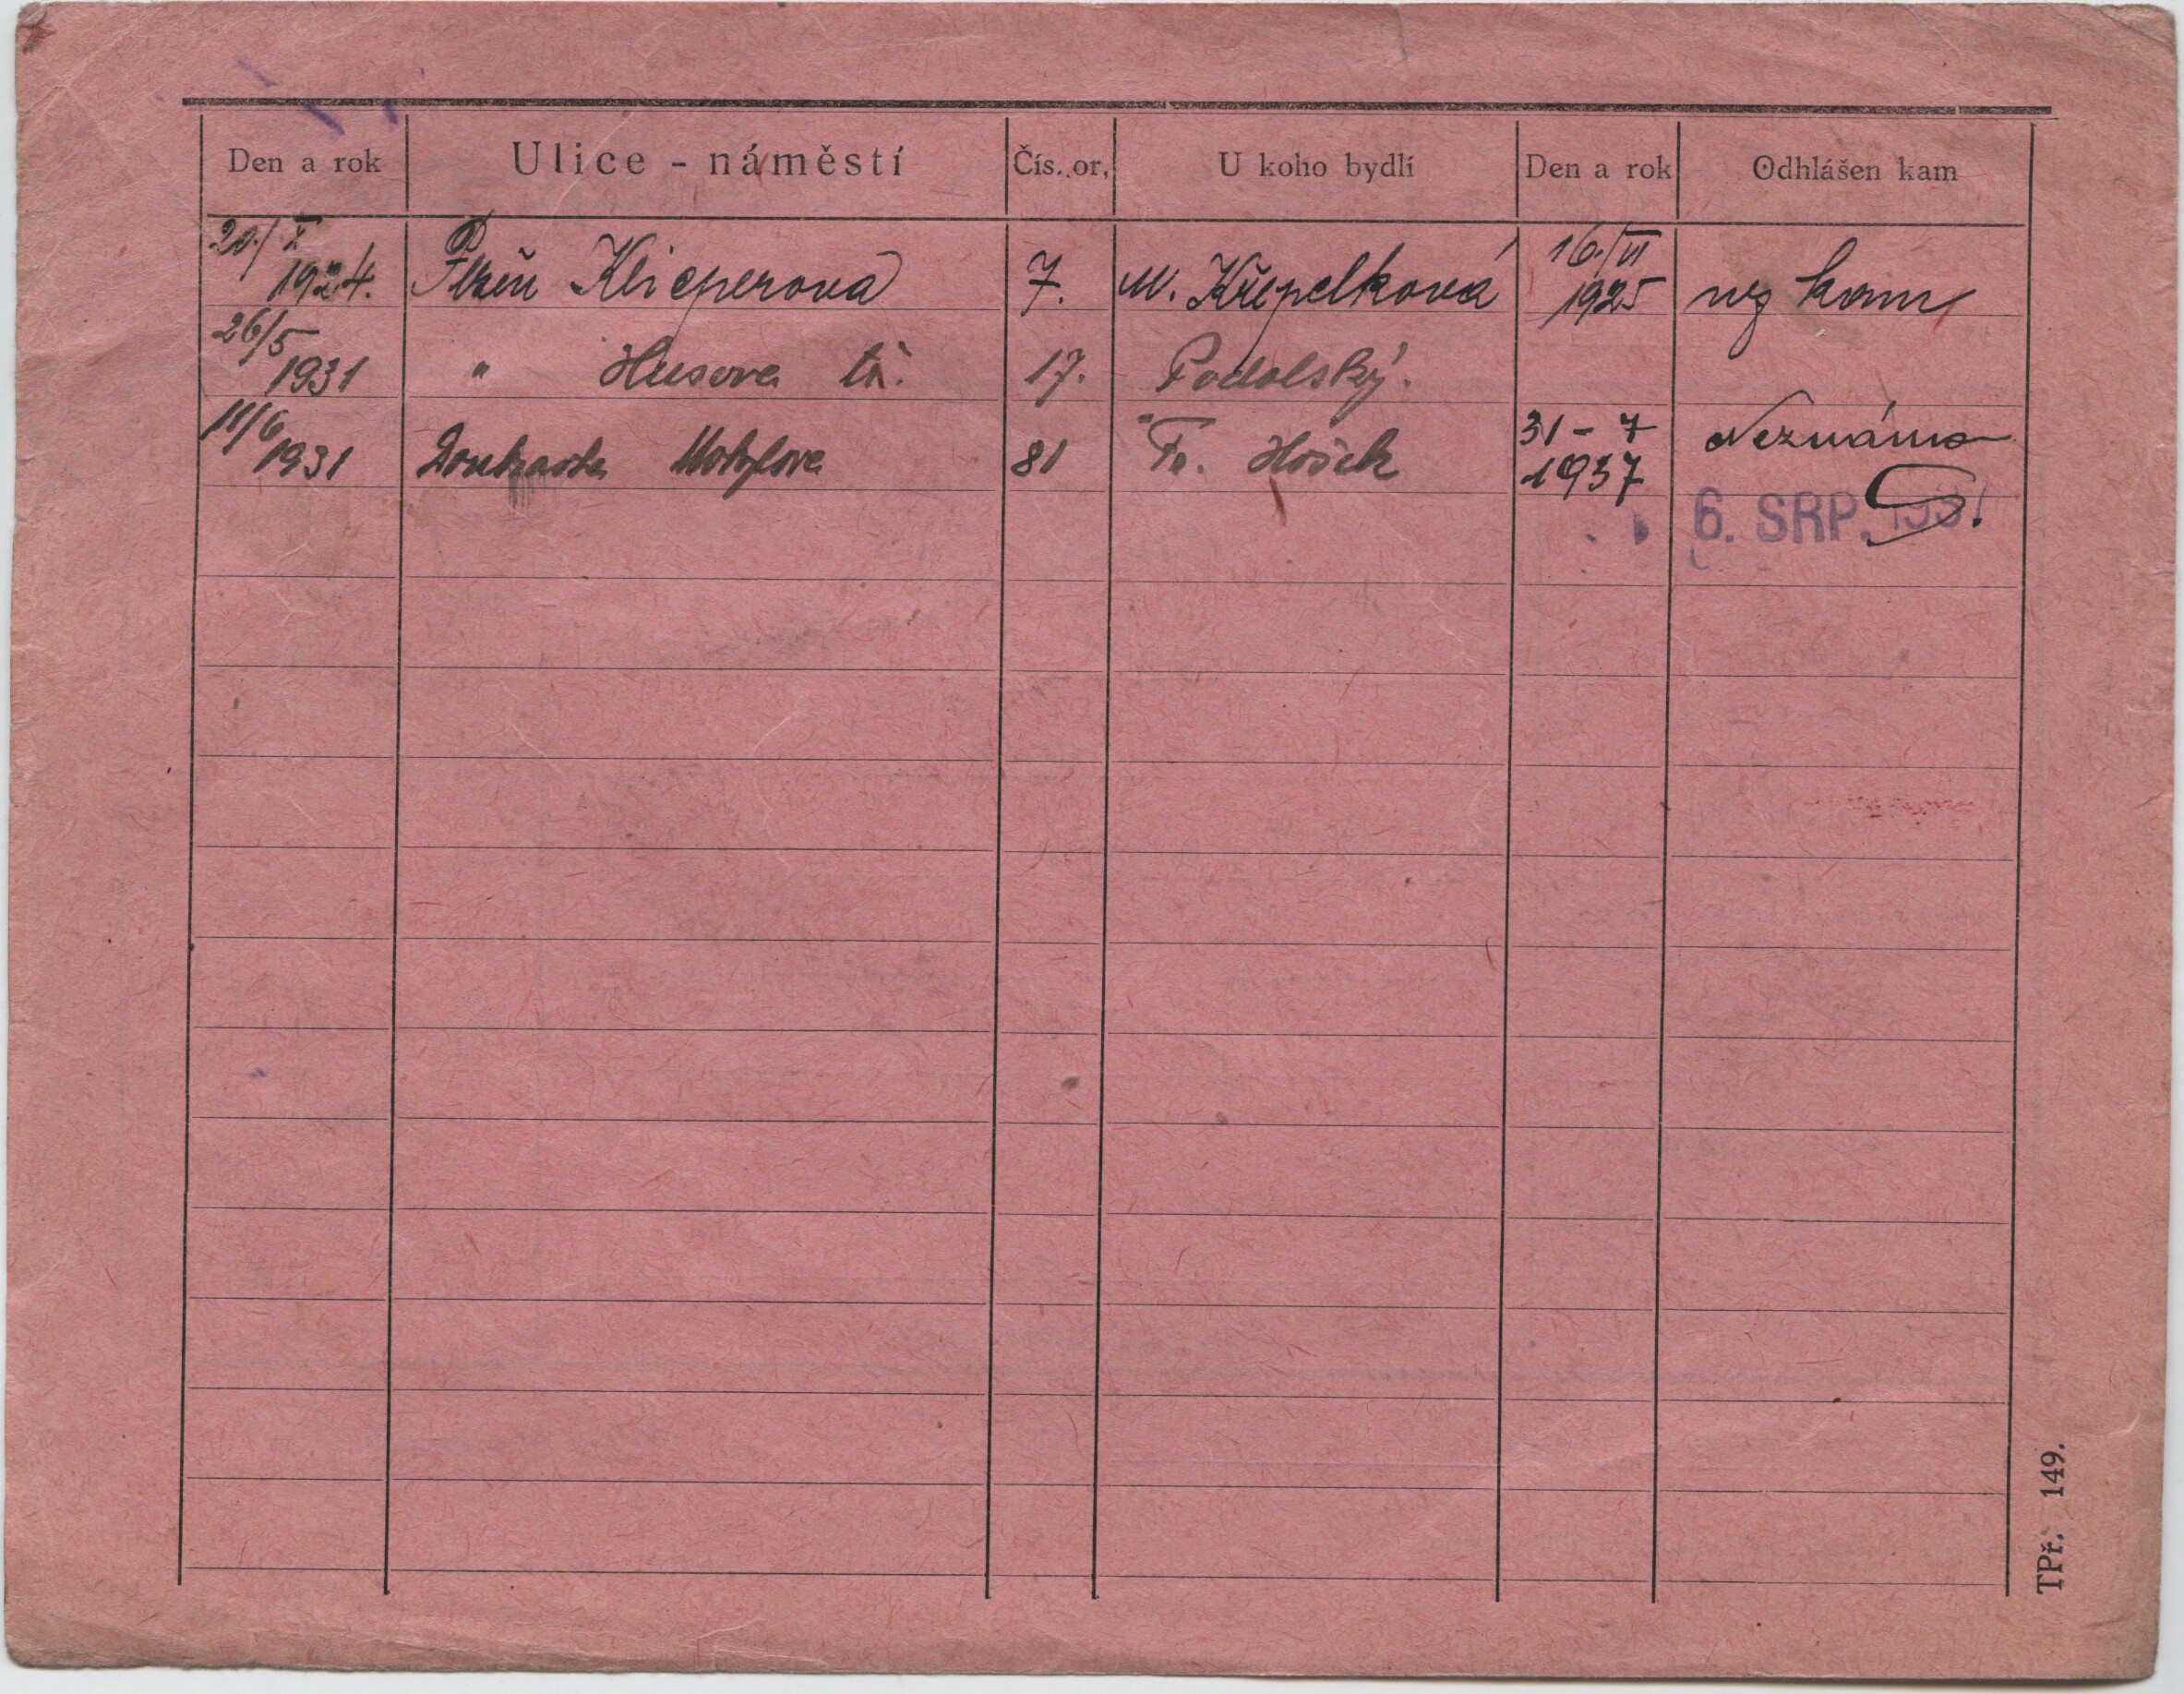 Den a rok Ulice - náměstí Čís. or. U koho bydlí Den a rok Odhlášen kam
20./X 1924. Plzeň Klicperova 7. M. Křepelková 16./VI 1925 kam
26/5 1931 " Husova tř. 17. Podolský.
11/6 1931 Doubravka 81 Fr. Hošek 31-7 1937 Neznámo
6. SRP. 1937
TPř. 149.